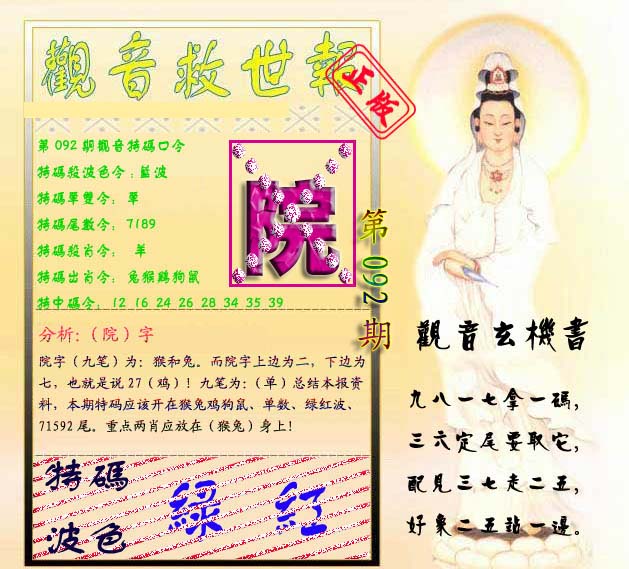 觀音救世報
正版
第092期觀音特碼口令
特碼殺波色令:藍波
特碼單雙令: 單
特碼尾數令: 7189
特碼殺肖令: 羊
特碼出肖令: 兔猴鷄狗鼠
特中碼令: 12 16 24 26 28 34 35 39
院
第092期
分析:(院)字
院字(九笔)为:猴和兔。而院字上边为二,下边为
七,也就是说27(鸡)!九笔为:(单)总结本报资
料,本期特码应该开在猴兔鸡狗鼠、单数、绿红波、
71592尾。重点两肖应放在(猴兔)身上!
特碼
波色
綠 紅
觀音玄機書
九八一七拿一碼,
三六定尾要取它,
配見三七走二五,
好象二五站一邊。